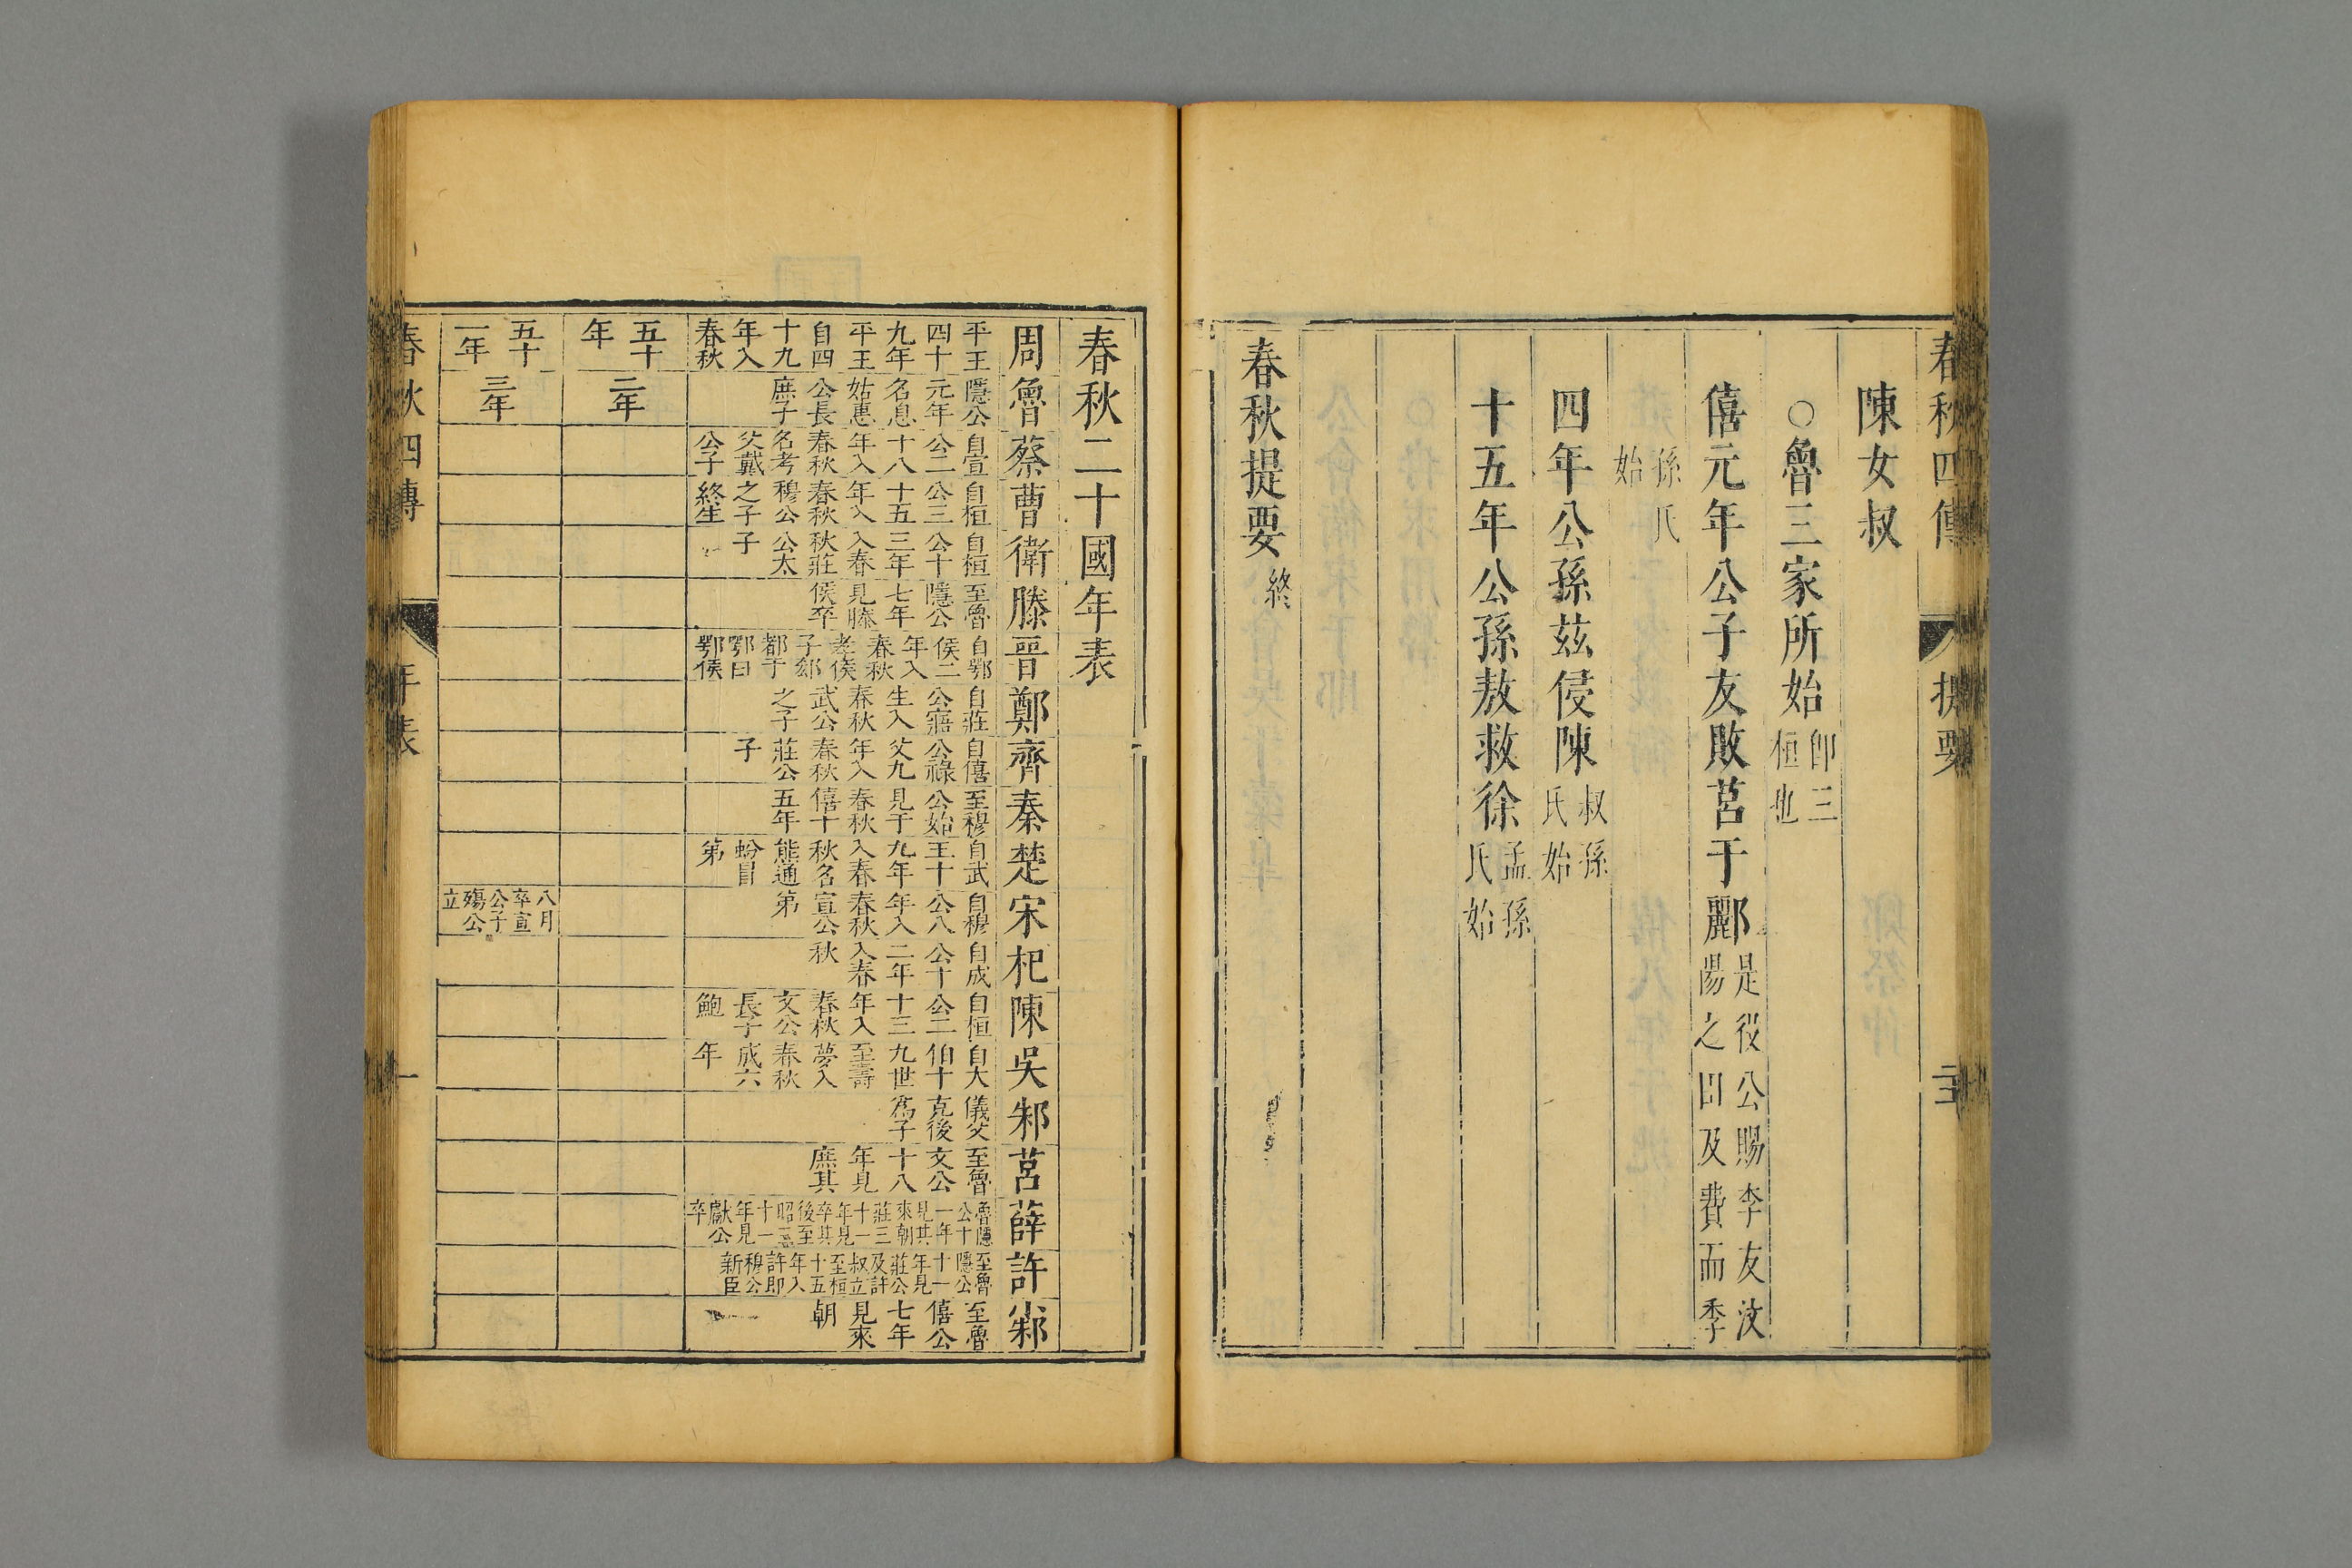 春秋四傳 提要
陳女叔
○魯三家所始 即三桓也
僖元年公子友敗莒于酈 是役公賜季友汶陽之田及費而季
孫氏始
四年公孫茲侵陳 叔孫氏始
十五年公孫敖救徐 孟孫氏始
春秋提要 終
春秋二十國年表
周魯蔡曹衛滕晉鄭齊秦楚宋杞陳吳邾莒薛許小邾
平王四十九年平王自四十九年入春秋
隱公元年名息姑惠公長庶子
自宣公二十八年入春秋名考父戴公子
自桓公三十五年入春秋穆公之子終生
自桓公十三年入春秋莊公太子
至魯隱公七年見滕侯卒
自鄂侯二年入春秋孝侯子郄都于鄂曰鄂侯
自莊公寤生入春秋武公之子
自僖公祿父九年入春秋莊公子
至穆公始見于春秋僖十五年
自武王十九年入春秋名熊通蚡冒第
自穆公八年入春秋宣公第
自成公十二年入春秋
自桓公二十三年入春秋文公長子鮑
自大伯十九世至壽夢入春秋成六年
儀父克後爲子
至魯文公十八年見庶其
魯隱公十一年見其來朝莊三十一年見卒其後至昭三十一年見獻公卒
至魯隱公十一年見莊公及許叔立至桓十五年入許即穆公新臣
至魯僖公七年見來朝
五十年
二年
五十一年
三年
八月卒宣公子殤公立
春秋四傳 年表 一